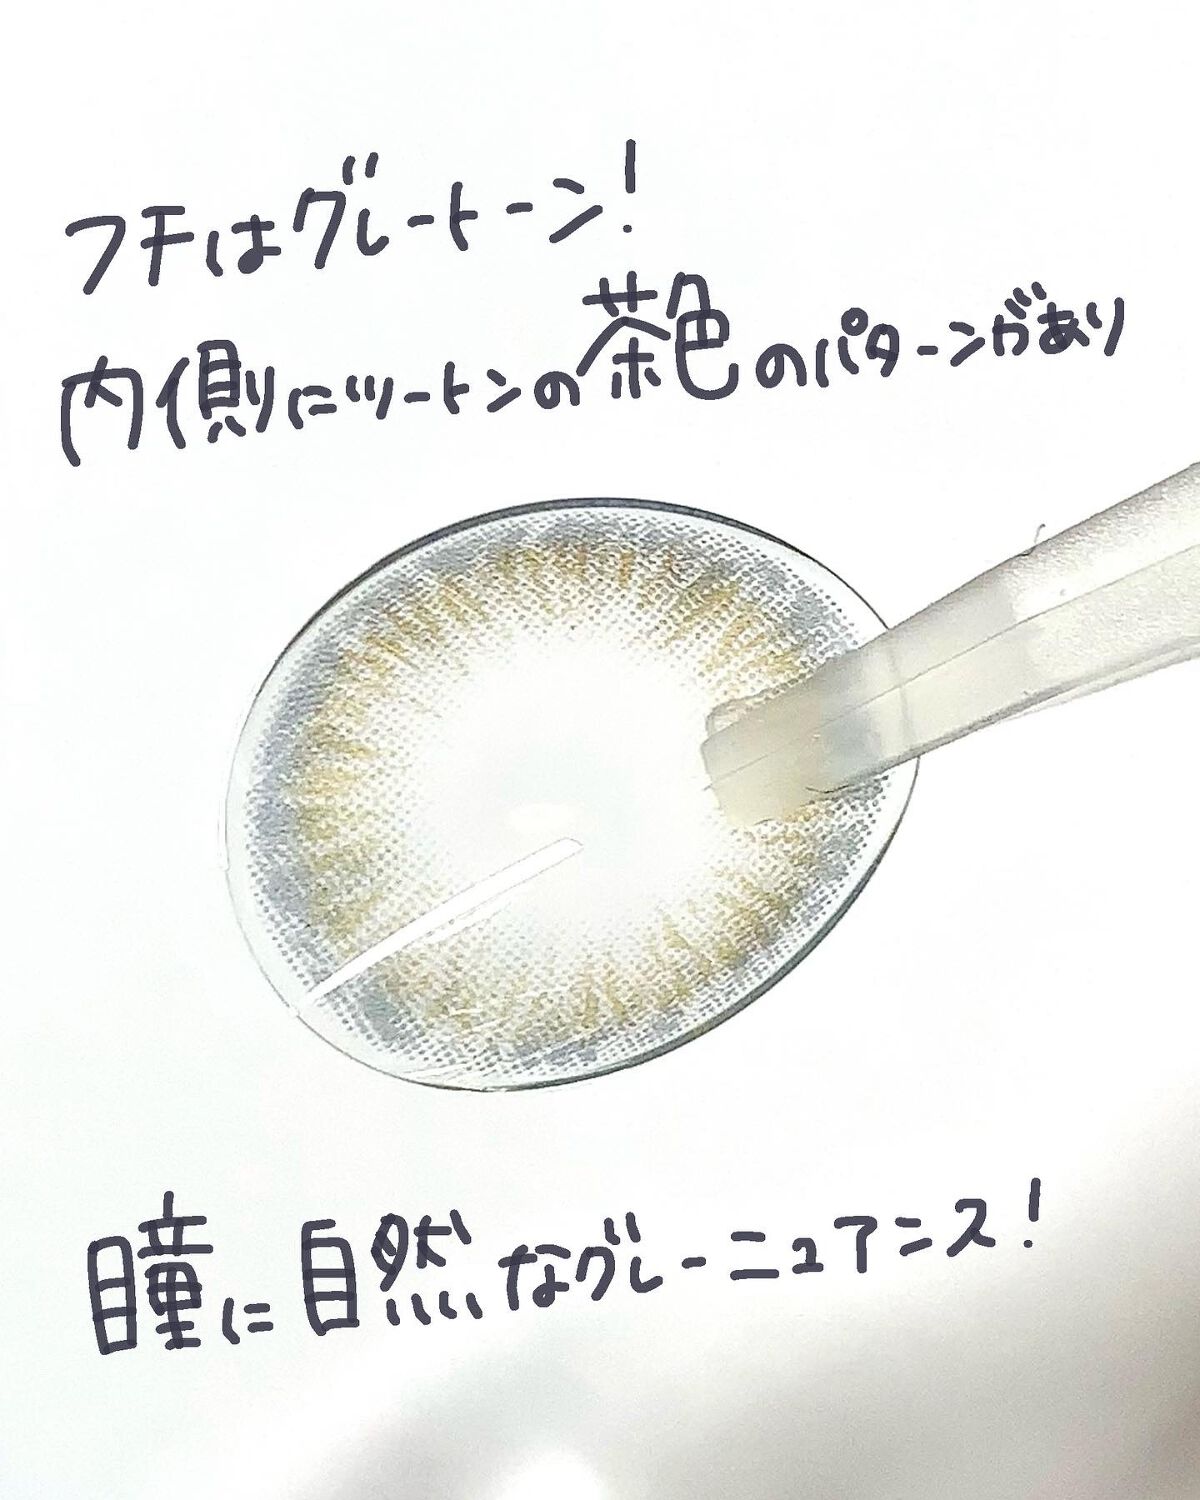 フチはグレートーン!
内側にツートンの茶色のパターンがあり
瞳に自然なグレーニュアンス!